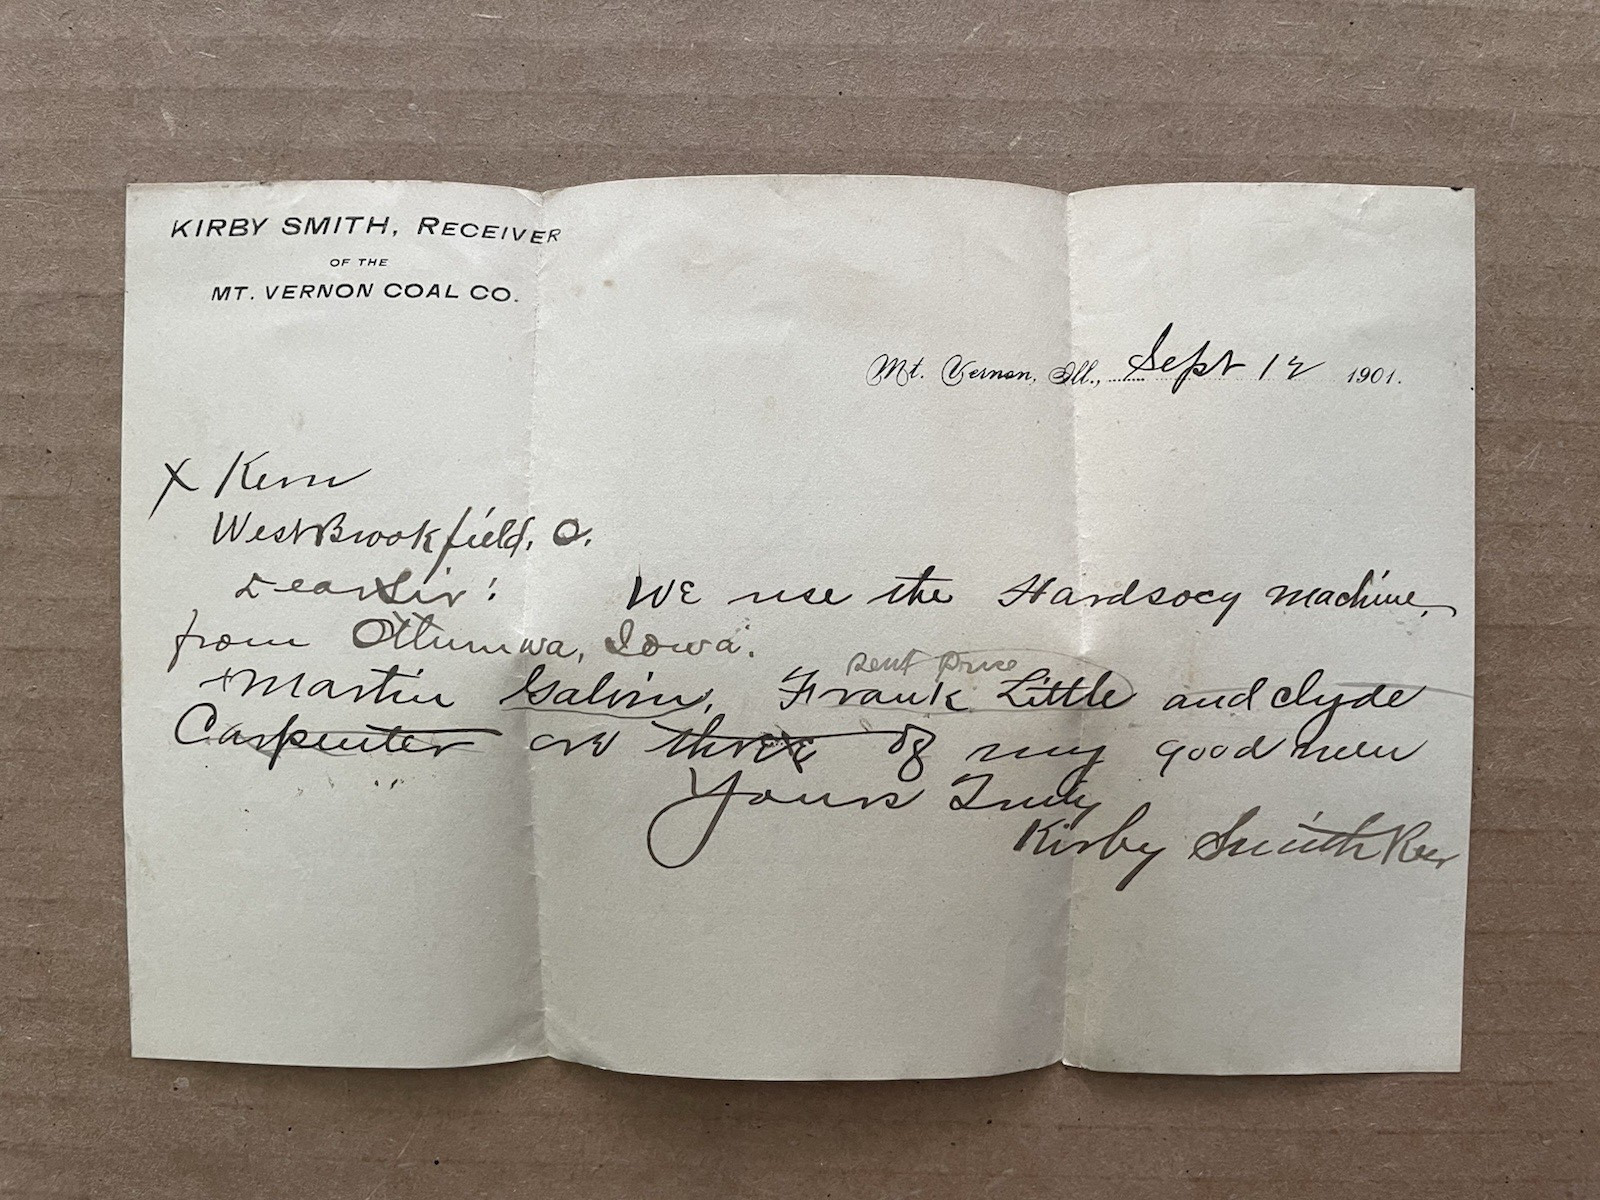 KIRBY SMITH, RECEIVER
OF THE
MT. VERNON COAL CO.
Mt. Vernon, Ill., Sept 12 1901.
x Kern
West Brookfield, O.
Dear Sir: We use the Hardsocg machine,
from Ottumwa, Iowa.
sent price
Martin Galvin, Frank Little and Clyde
Carpenter are three of my good men
Yours Truly
Kirby Smith Rec